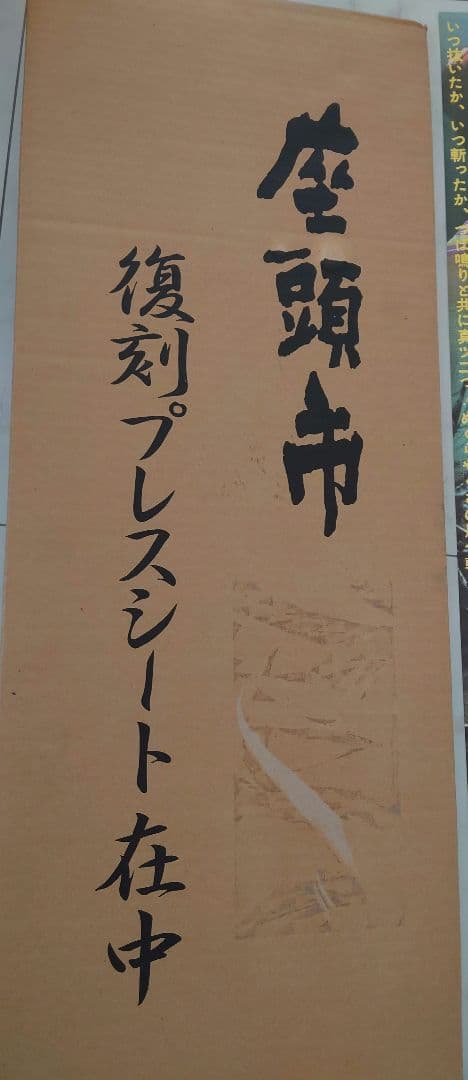 いつ抜いたか、いつ斬ったか、つば鳴りと共に真ッ二つ
座頭市
復刻プレスシート在中